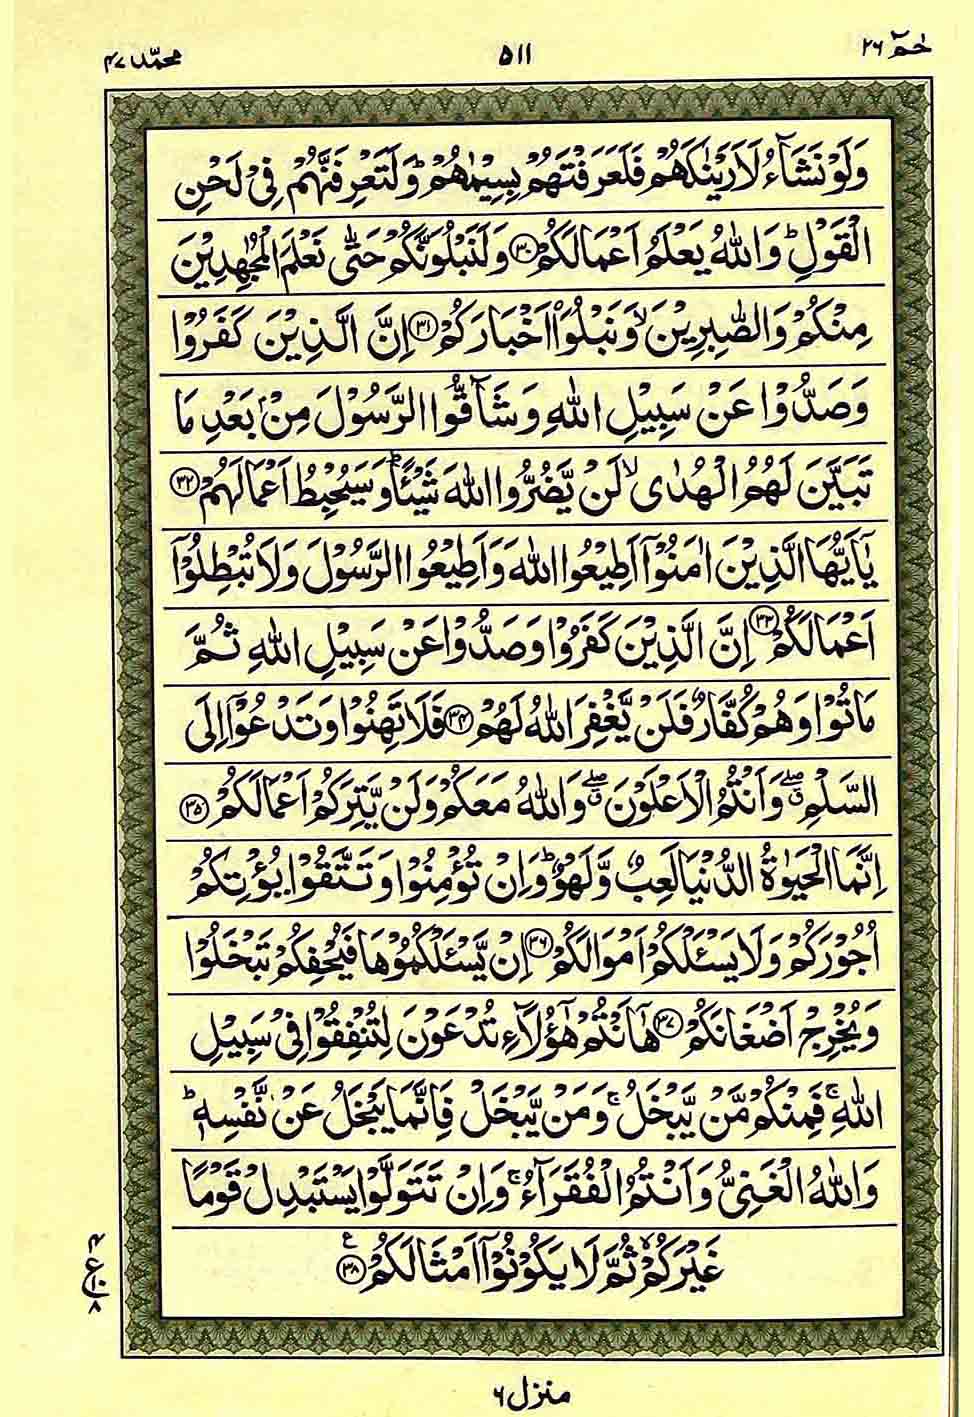 حٰمٓ ٢٦
٥١١
محمّد ٤٧
وَلَوْ نَشَآءُ لَاَرَيْنٰكَهُمْ فَلَعَرَفْتَهُمْ بِسِيْمٰهُمْ ؕ وَلَتَعْرِفَنَّهُمْ فِيْ لَحْنِ
الْقَوْلِ ؕ وَاللّٰهُ يَعْلَمُ اَعْمَالَكُمْ ﴿٣٠﴾ وَلَنَبْلُوَنَّكُمْ حَتّٰى نَعْلَمَ الْمُجٰهِدِيْنَ
مِنْكُمْ وَالصّٰبِرِيْنَ ۙ وَنَبْلُوَا۟ اَخْبَارَكُمْ ﴿٣١﴾ اِنَّ الَّذِيْنَ كَفَرُوْا
وَصَدُّوْا عَنْ سَبِيْلِ اللّٰهِ وَشَآقُّوا الرَّسُوْلَ مِنْۢ بَعْدِ مَا
تَبَيَّنَ لَهُمُ الْهُدٰى ۙ لَنْ يَّضُرُّوا اللّٰهَ شَيْـًٔا ؕ وَسَيُحْبِطُ اَعْمَالَهُمْ ﴿٣٢﴾
يٰۤاَيُّهَا الَّذِيْنَ اٰمَنُوْۤا اَطِيْعُوا اللّٰهَ وَاَطِيْعُوا الرَّسُوْلَ وَلَا تُبْطِلُوْۤا
اَعْمَالَكُمْ ﴿٣٣﴾ اِنَّ الَّذِيْنَ كَفَرُوْا وَصَدُّوْا عَنْ سَبِيْلِ اللّٰهِ ثُمَّ
مَاتُوْا وَهُمْ كُفَّارٌ فَلَنْ يَّغْفِرَ اللّٰهُ لَهُمْ ﴿٣٤﴾ فَلَا تَهِنُوْا وَتَدْعُوْۤا اِلَى
السَّلْمِ ۖۗ وَاَنْتُمُ الْاَعْلَوْنَ ۖۗ وَاللّٰهُ مَعَكُمْ وَلَنْ يَّتِرَكُمْ اَعْمَالَكُمْ ﴿٣٥﴾
اِنَّمَا الْحَيٰوةُ الدُّنْيَا لَعِبٌ وَّلَهْوٌ ؕ وَاِنْ تُؤْمِنُوْا وَتَتَّقُوْا يُؤْتِكُمْ
اُجُوْرَكُمْ وَلَا يَسْـَٔلْكُمْ اَمْوَالَكُمْ ﴿٣٦﴾ اِنْ يَّسْـَٔلْكُمُوْهَا فَيُحْفِكُمْ تَبْخَلُوْا
وَيُخْرِجْ اَضْغَانَكُمْ ﴿٣٧﴾ هٰۤاَنْتُمْ هٰٓؤُلَآءِ تُدْعَوْنَ لِتُنْفِقُوْا فِيْ سَبِيْلِ
اللّٰهِ ۚ فَمِنْكُمْ مَّنْ يَّبْخَلُ ۚ وَمَنْ يَّبْخَلْ فَاِنَّمَا يَبْخَلُ عَنْ نَّفْسِهٖ ؕ
وَاللّٰهُ الْغَنِيُّ وَاَنْتُمُ الْفُقَرَآءُ ۚ وَاِنْ تَتَوَلَّوْا يَسْتَبْدِلْ قَوْمًا
غَيْرَكُمْ ۙ ثُمَّ لَا يَكُوْنُوْۤا اَمْثَالَكُمْ ﴿٣٨﴾ ع
٤
ع ١٠
٨
منزل ٦